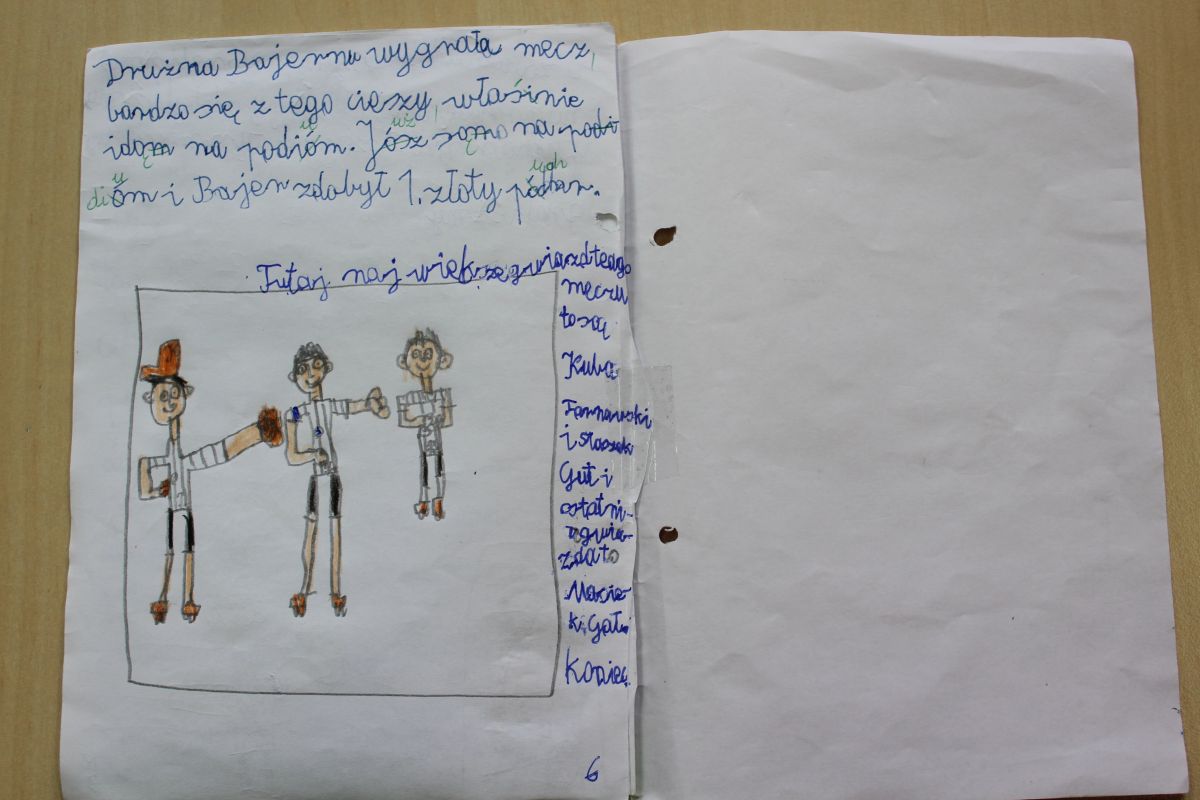 Drużna Bajernu wygnała mecz,
bardzo się z tego cieszy, właśinie
idom na podióm. Jósz są na podi
dióm i Bajer zdobył 1. złoty púchar.
Tutaj naj więk sze gwiazd tego
męczu
to są
Kuba
Tarnawski
i staszek
Gut i
ostatni-
a gwia-
zda to
Macie-
k Gał
Koniec
6